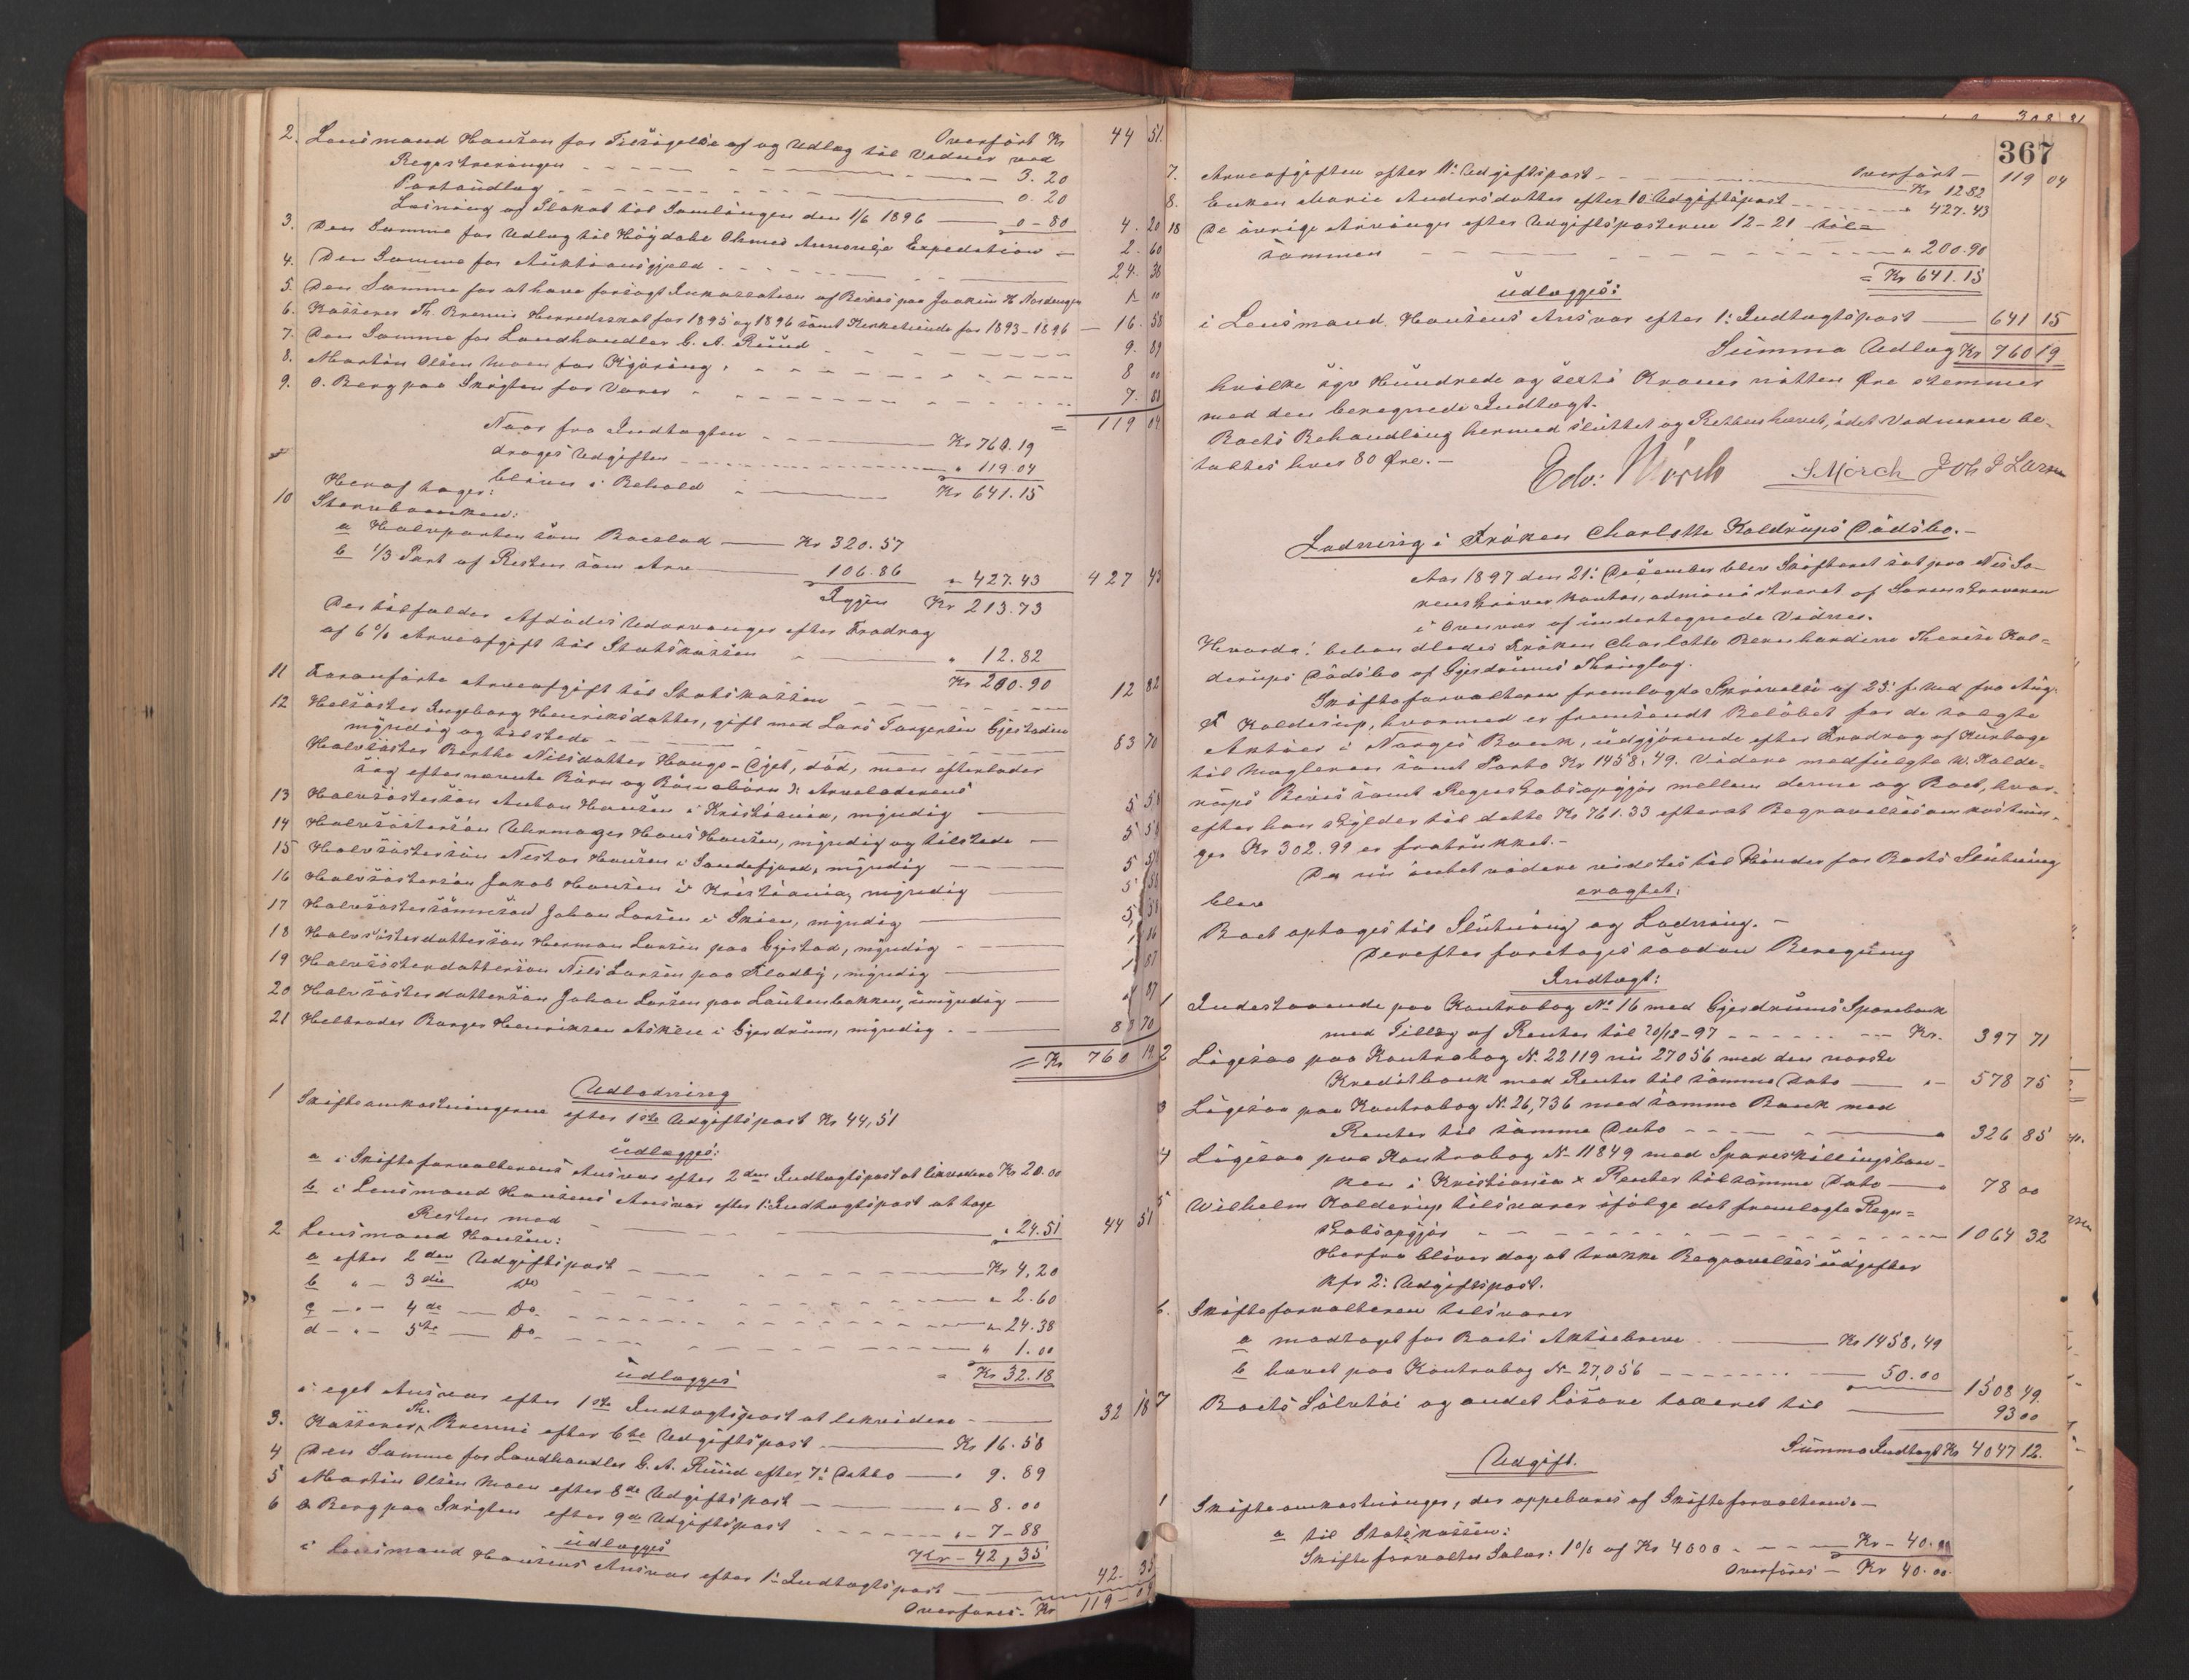 Overført Kr 44 51
2. Lensmand Hansen for Tilsigelse af og Udlæg til Vidner ved
Registreringen 3.20
Portoudlæg 0.20
Læsning og Plakat til Samlingen den 1/6 1896 0-80 4.20
3. Den Samme for Udlæg til Expedition 2.60
4. Den Samme for Auktionsgjæld 24.38
5. Den Samme for at have forsøgt Inkassation af Bevis paa Joakim H Nordengen 1 00
6. Kasserer Th. Brenni Herredsskat for 1895 og 1896 samt Kirketiende for 1893-1896 16.58
7. Den Samme for Landhandler C. A. Ruud 9.89
8. Martin Olsen Moen for Kjøring 8 00
9. O. Berg paa Skrigten for Varer 7.88
= 119 04
Naar fra Indtægten Kr 760.19
drages Udgiften " 119.04
bliver i Behold Kr 641.15
Heraf tager:
10 Stervboenken:
a Halvparten som Boeslod Kr 320.57
b 1/3 Part af Resten som Arv 106.86 " 427.43 427 43
Igjen Kr 213.73
Der tilfalder Afdødes Udarvinger efter Fradrag
af 6% Arveafgift til Statskassen " 12.82
Kr 200.90
11 Foranførte Arveafgift til Statskassen 12 82
12 Helsøster Ingeborg Henriksdatter, gift med Lars Torgersen Gjestaden
myndig og tilstede 83 70
Halvsøster Berthe Nilsdatter Hauge-Ejet, død, men efterlader
sig efternævnte Børn og Børnebørn d: Arveladerens
13 Halvsøstersøn Anton Hansen i Kristiania, myndig 5 58
14 Halvsøstersøn Uhrmager Hans Hansen, myndig og tilstede 5 58
15 Halvsøstersøn Nestor Hansen i Sandefjord, myndig 5 58
16 Halvsøstersøn Jakob Hansen i Kristiania, myndig 5 58
17 Halvsøstersønnesøn Johan Larsen i Skien, myndig 5 58
18 Halvsøsterdattersøn Herman Larsen paa Gjestad, myndig 1 86
19 Halvsøsterdattersøn Nils Larsen paa Fladby, myndig 1 87
20 Halvsøsterdattersøn Johan Larsen paa Lautenbakken, umyndig 1 87
21 Helbroder Borger Henriksen Asklen i Gjerdrum, myndig 83 70
= Kr 760 19
Udlodning
1 Skifteomkostningerne efter 1ste Udgiftspost Kr 44,51
udlægges:
a i Skifteforvalterens Ansvar efter 2den Indtægtspost at likvidere Kr 20.00
b i Lensmand Hansens Ansvar efter 1: Indtægtspost at tage
Resten med " 24.51 44 51
2 Lensmand Hansen:
a efter 2den Udgiftspost Kr 4,20
b " - 3die Do " 2.60
c - " - 4de Do. " 24.38
d - " - 5te Do " 1.00
= Kr 32.18
udlægges
i eget Ansvar efter 1ste Indtægtspost at likvidere 32 18
3. Kasserer Th. Brenni efter 6te Udgiftspost Kr 16.58
4 Den Samme for Landhandler C. A. Ruud efter 7: Ditto " 9.89
5 Martin Olsen Moen efter 8de Udgiftspost " 8.00
6 O Berg paa Skrigten efter 9de Udgiftspost " 7-88
Kr - 42,35
udlægges
i Lensmand Hansens Ansvar efter 1: Indtægtspost 42.35
Overføres Kr 119-04
367
Overført 119 04
7. Arveafgiften efter 11: Udgiftspost Kr 12.82
8. Enken Marie Andersdatter efter 10: Udgiftspost " 427.43
18 De øvrige Arvinger efter Udgiftsposterne 12-21 til=
sammen " 200.90
= Kr 641.15
udlægges:
i Lensmand Hansens Ansvar efter 1: Indtægtspost 641 15
Summa Udlæg Kr 760 19
hvilke syv Hundrede og sexti Kroner nitten Øre stemmer
med den beregnede Indtægt.
Boets Behandling hermed sluttet og Retten hævet, idet Vidnerne be-
taltes hver 80 Øre. -
Edv: Mørch S Mørch Joh S Larsen
Lodning i Frøken Charlotte Koldrups Dødsbo. -
Aar 1897 den 21: December blev Skifteret sat paa Nes So-
renskriverkontor, administreret af Sorenskriveren
i Overvær af undertegnede Vidner.
Hvorda: behandledes Frøken Charlotte Bernhardine Therese Kol-
derups Dødsbo af Gjerdrums Thinglag.
Skifteforvalteren fremlagde Skrivelse af 23: f. Md fra Aug:
F Kolderup, hvormed er fremsendt Beløbet for de solgte
Aktier i Norges Bank, udgjørende efter Fradrag af Kurtage
til Mægleren samt Porto Kr 1458.49. Videre medfulgte W. Kolde-
rups Bevis samt Regnskabsopgjør mellem denne og Boet, hvor-
efter han skylder til dette Kr 761.33 efterat Begravelsesomkostnin-
ger Kr 302.99 er fratrukket. -
Da nu intet videre vidstes til Hinder for Boets Slutning
blev eragtet:
Boet optages til Slutning og Lodning. -
Derefter foretoges saadan Beregning
Indtægt:
1 Indestaaende paa Kontrabog No 16 med Gjerdrums Sparebank
med Tillæg af Renter til 20/12-97 Kr. 397 71
2 Ligesaa paa Kontrabog N. 22119 nu 27056 med den norske
Kreditbank med Renter til samme Dato " 578 75
3 Ligesaa paa Kontrabog N. 26,736 med samme Bank med
Renter til samme Dato " 326 85
4 Ligesaa paa Kontrabog No 11849 med Spareskillingsban-
ken i Kristiania & Renter til samme Dato " 78 00
5 Wilhelm Kolderup tilsvarer ifølge det fremlagte Regn=
skabsopgjør 1064 32
Herfra bliver dog at trække Begravelsesudgifter
kfr 2: Udgiftspost.
6. Skifteforvalteren tilsvarer
a modtaget for Boets Aktiebreve Kr 1458,49
b hævet paa Kontrabog No 27,056 50.00
1508 49
7 Boets Sølvtøi og andet Løsøre taxeret til 93 00
Summa Indtægt Kr 4047 12.
Udgift.
1 Skifteomkostninger, der oppebæres af Skifteforvalteren: -
a til Statskassen:
Skifteforvalter Salær: 1% af Kr 4000 Kr - 40.00
Overføres - Kr 40.00